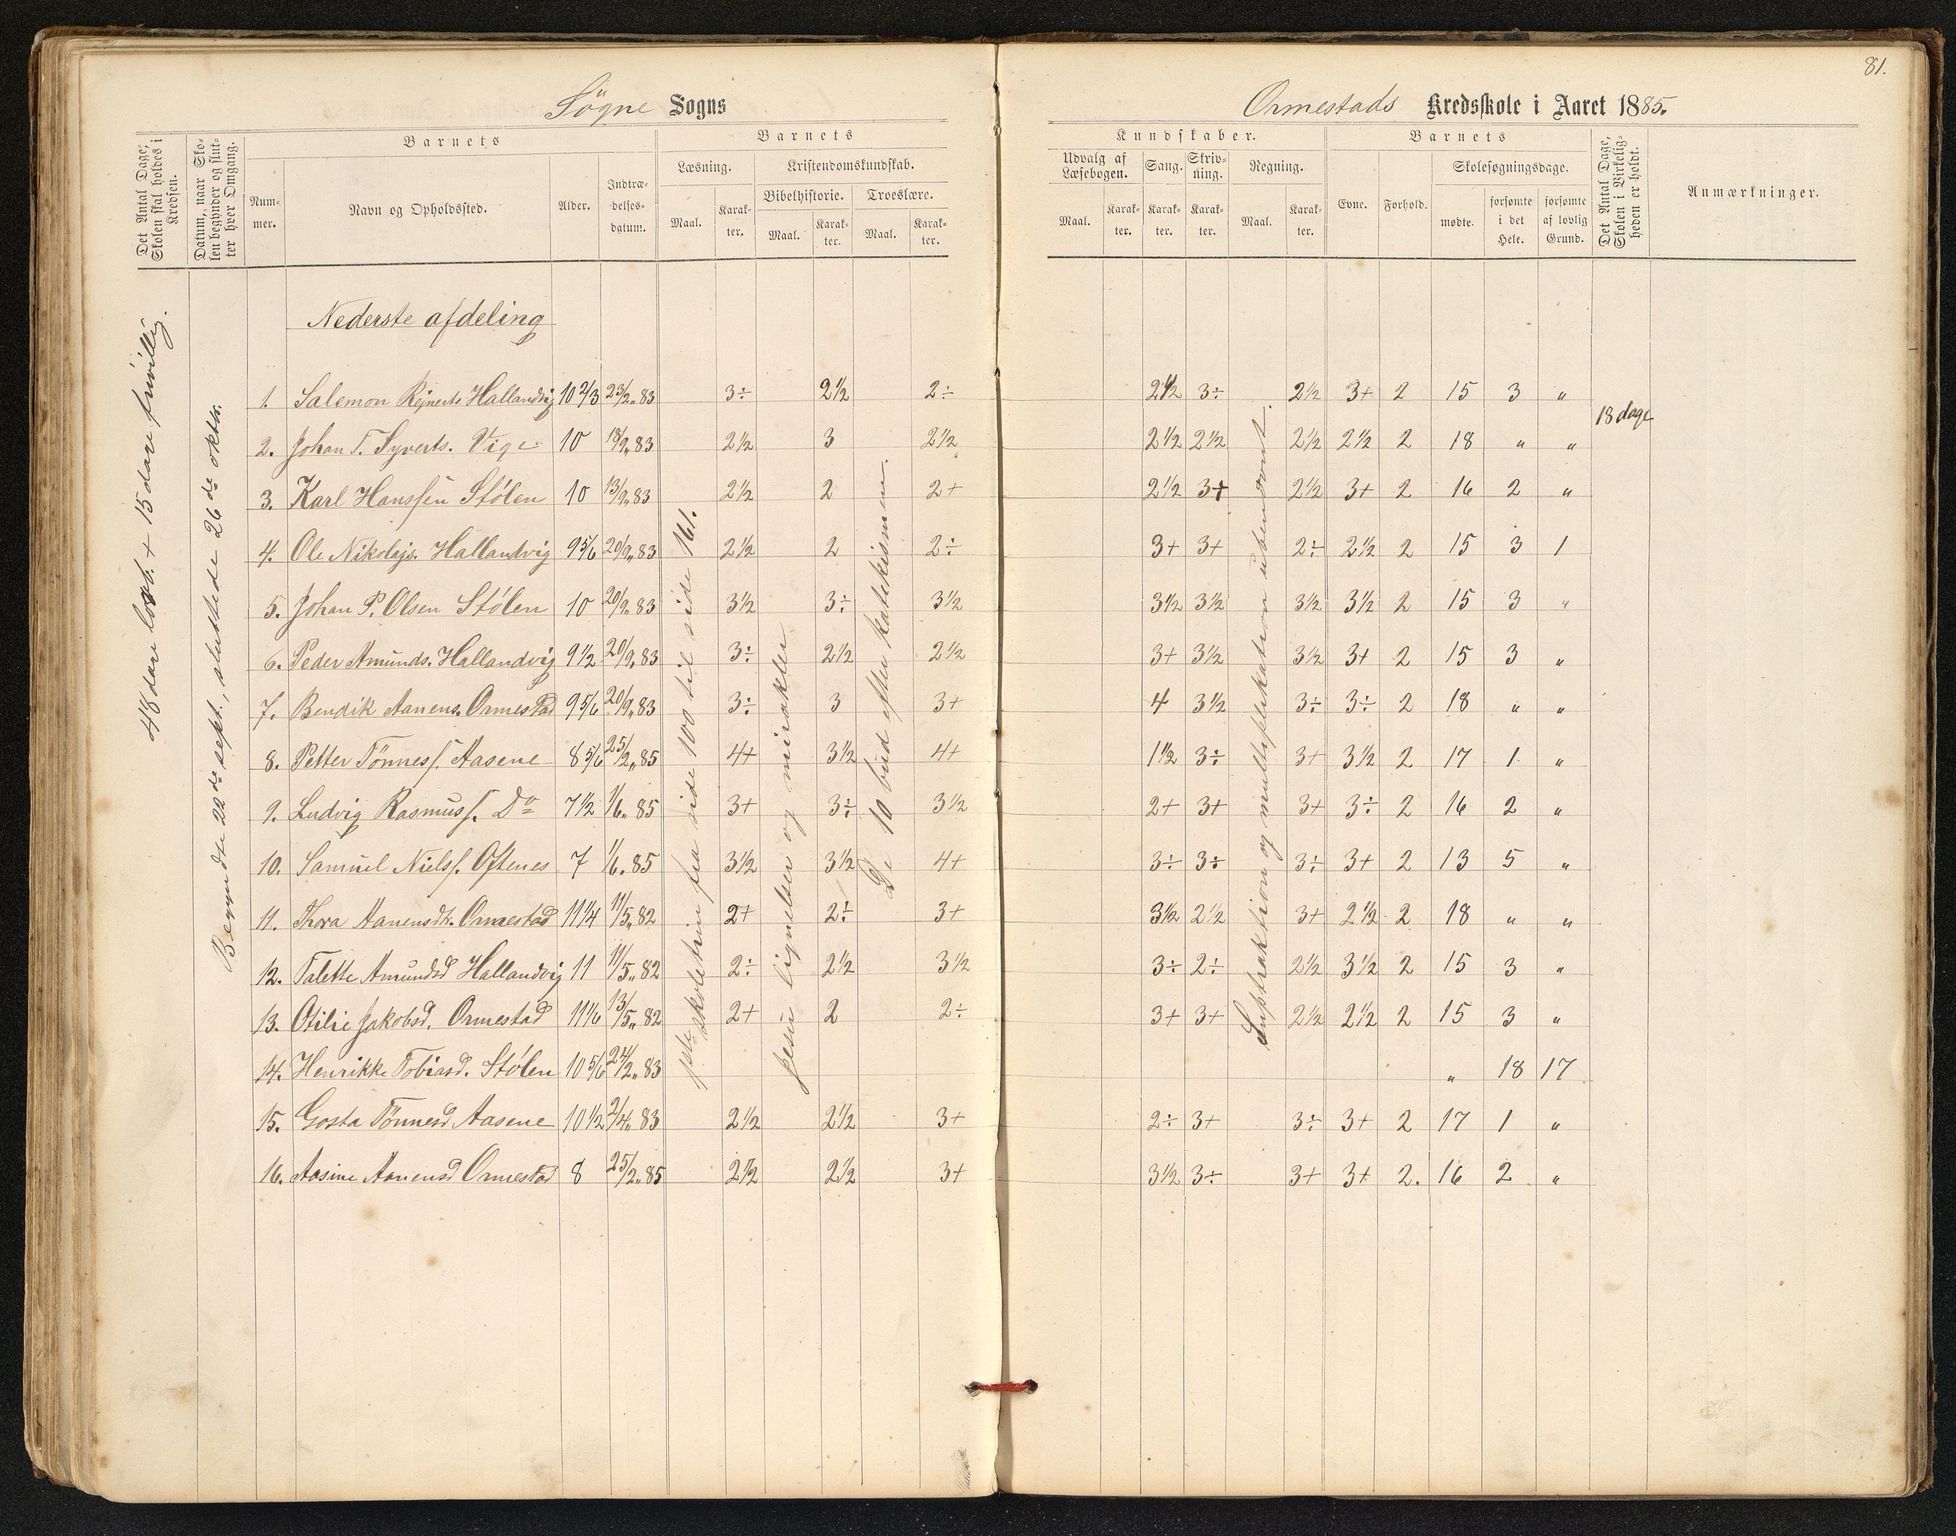 81.
Søgne Sogns
Ormestads Kredsskole i Aaret 1885.
Det Antal Dage, Skolen skal holdes i Kredsen.
Datum, naar Skolen begynder og slutter hver Omgang.
Barnets
Nummer.
Navn og Opholdssted.
Alder.
Indtrædelsesdatum.
Barnets
Læsning.
Kristendomskundskab.
Bibelhistorie.
Troeslære.
Maal.
Karakter.
Maal.
Karakter.
Maal.
Karakter.
Kundskaber.
Udvalg af Læsebogen.
Sang.
Skrivning.
Regning.
Maal.
Karakter.
Karakter.
Karakter.
Maal.
Karakter.
Barnets
Evne.
Forhold.
Skolesøgningsdage.
mødte.
forsømte i det Hele.
forsømte af lovlig Grund.
Det Antal Dage, Skolen i Virkeligheden er holdt.
Anmærkninger.
Nederste afdeling
1. Salemon Rejnerts Hallandvig 10 2/3 23/2 „ 83 3÷ 2½ 2÷ 2½ 3÷ 2½ 3+ 2 15 3 „
18 dage
2. Johan T. Syverts. Vige 10 18/9 „ 83 2½ 3 2½ 2½ 2½ 2½ 2½ 2 18 „ „
3. Karl Hanssen Stølen 10 13/9 „ 83 2½ 2 2+ 2½ 3+ 2½ 3+ 2 16 2 „
4. Ole Nikolajs. Hallandvig 9 5/6 20/9 „ 83 2½ 2 2÷ 3+ 3+ 2÷ 2½ 2 15 3 1
5. Johan P. Olsen Stølen 10 20/9 „ 83 3½ 3÷ 3½ 3½ 3½ 3½ 3½ 2 15 3 „
6. Peder Amunds. Hallandvig 9½ 20/9 „ 83 3÷ 2½ 2½ 3+ 3½ 3½ 3+ 2 15 3 „
7. Bendik Aanens. Ormestad 9 5/6 20/9 „ 83 3÷ 3 3+ 4 3½ 3÷ 3÷ 2 18 „ „
8. Petter Tönness. Aasene 8 5/6 25/2 „ 85 4+ 3½ 4+ 1½ 3÷ 3+ 3½ 2 17 1 „
9. Ludvig Rasmuss. Do 7½ 1/6 „ 85 3+ 3÷ 3½ 2+ 3+ 3+ 3÷ 2 16 2 „
10. Samuel Nielss. Oftenes 7 1/6 „ 85 3½ 3½ 4+ 3÷ 3÷ 3÷ 3+ 2 13 5 „
11. Thora Aanensdt. Ormestad 11¼ 11/5 „ 82 2+ 2÷ 3+ 3½ 2½ 3+ 2½ 2 18 „ „
12. Talette Amundsd Hallandvig 11 11/5 „ 82 2÷ 2½ 3½ 3÷ 2÷ 2½ 3½ 2 15 3 „
13. Otilie Jakobsd. Ormestad 11 1/6 13/5 „ 82 2+ 2 2÷ 3+ 3+ 2½ 2½ 2 15 3 „
14. Henrikke Tobiasd. Stølen 10 5/6 24/2 „ 83 „ 18 17
15. Gosta Tönnesd Aasene 10½ 2/4 „ 83 2½ 2½ 3+ 2÷ 3+ 3÷ 3+ 2 17 1 „
16. Aasine Aanensd Ormestad 8 25/2 „ 85 2½ 2½ 3+ 3½ 3÷ 3+ 3+ 2. 16 2 „
48 dage lovb. + 15 dage frivillig.
Begyndte 22de sept., sluttede 26de oktbr.
1ste skoletrin fra side 100 til side 161.
Jesu lignelser og mirakler
De 10 bud efter katekismen.
Subtraktion og multiplikation ubenævnt.